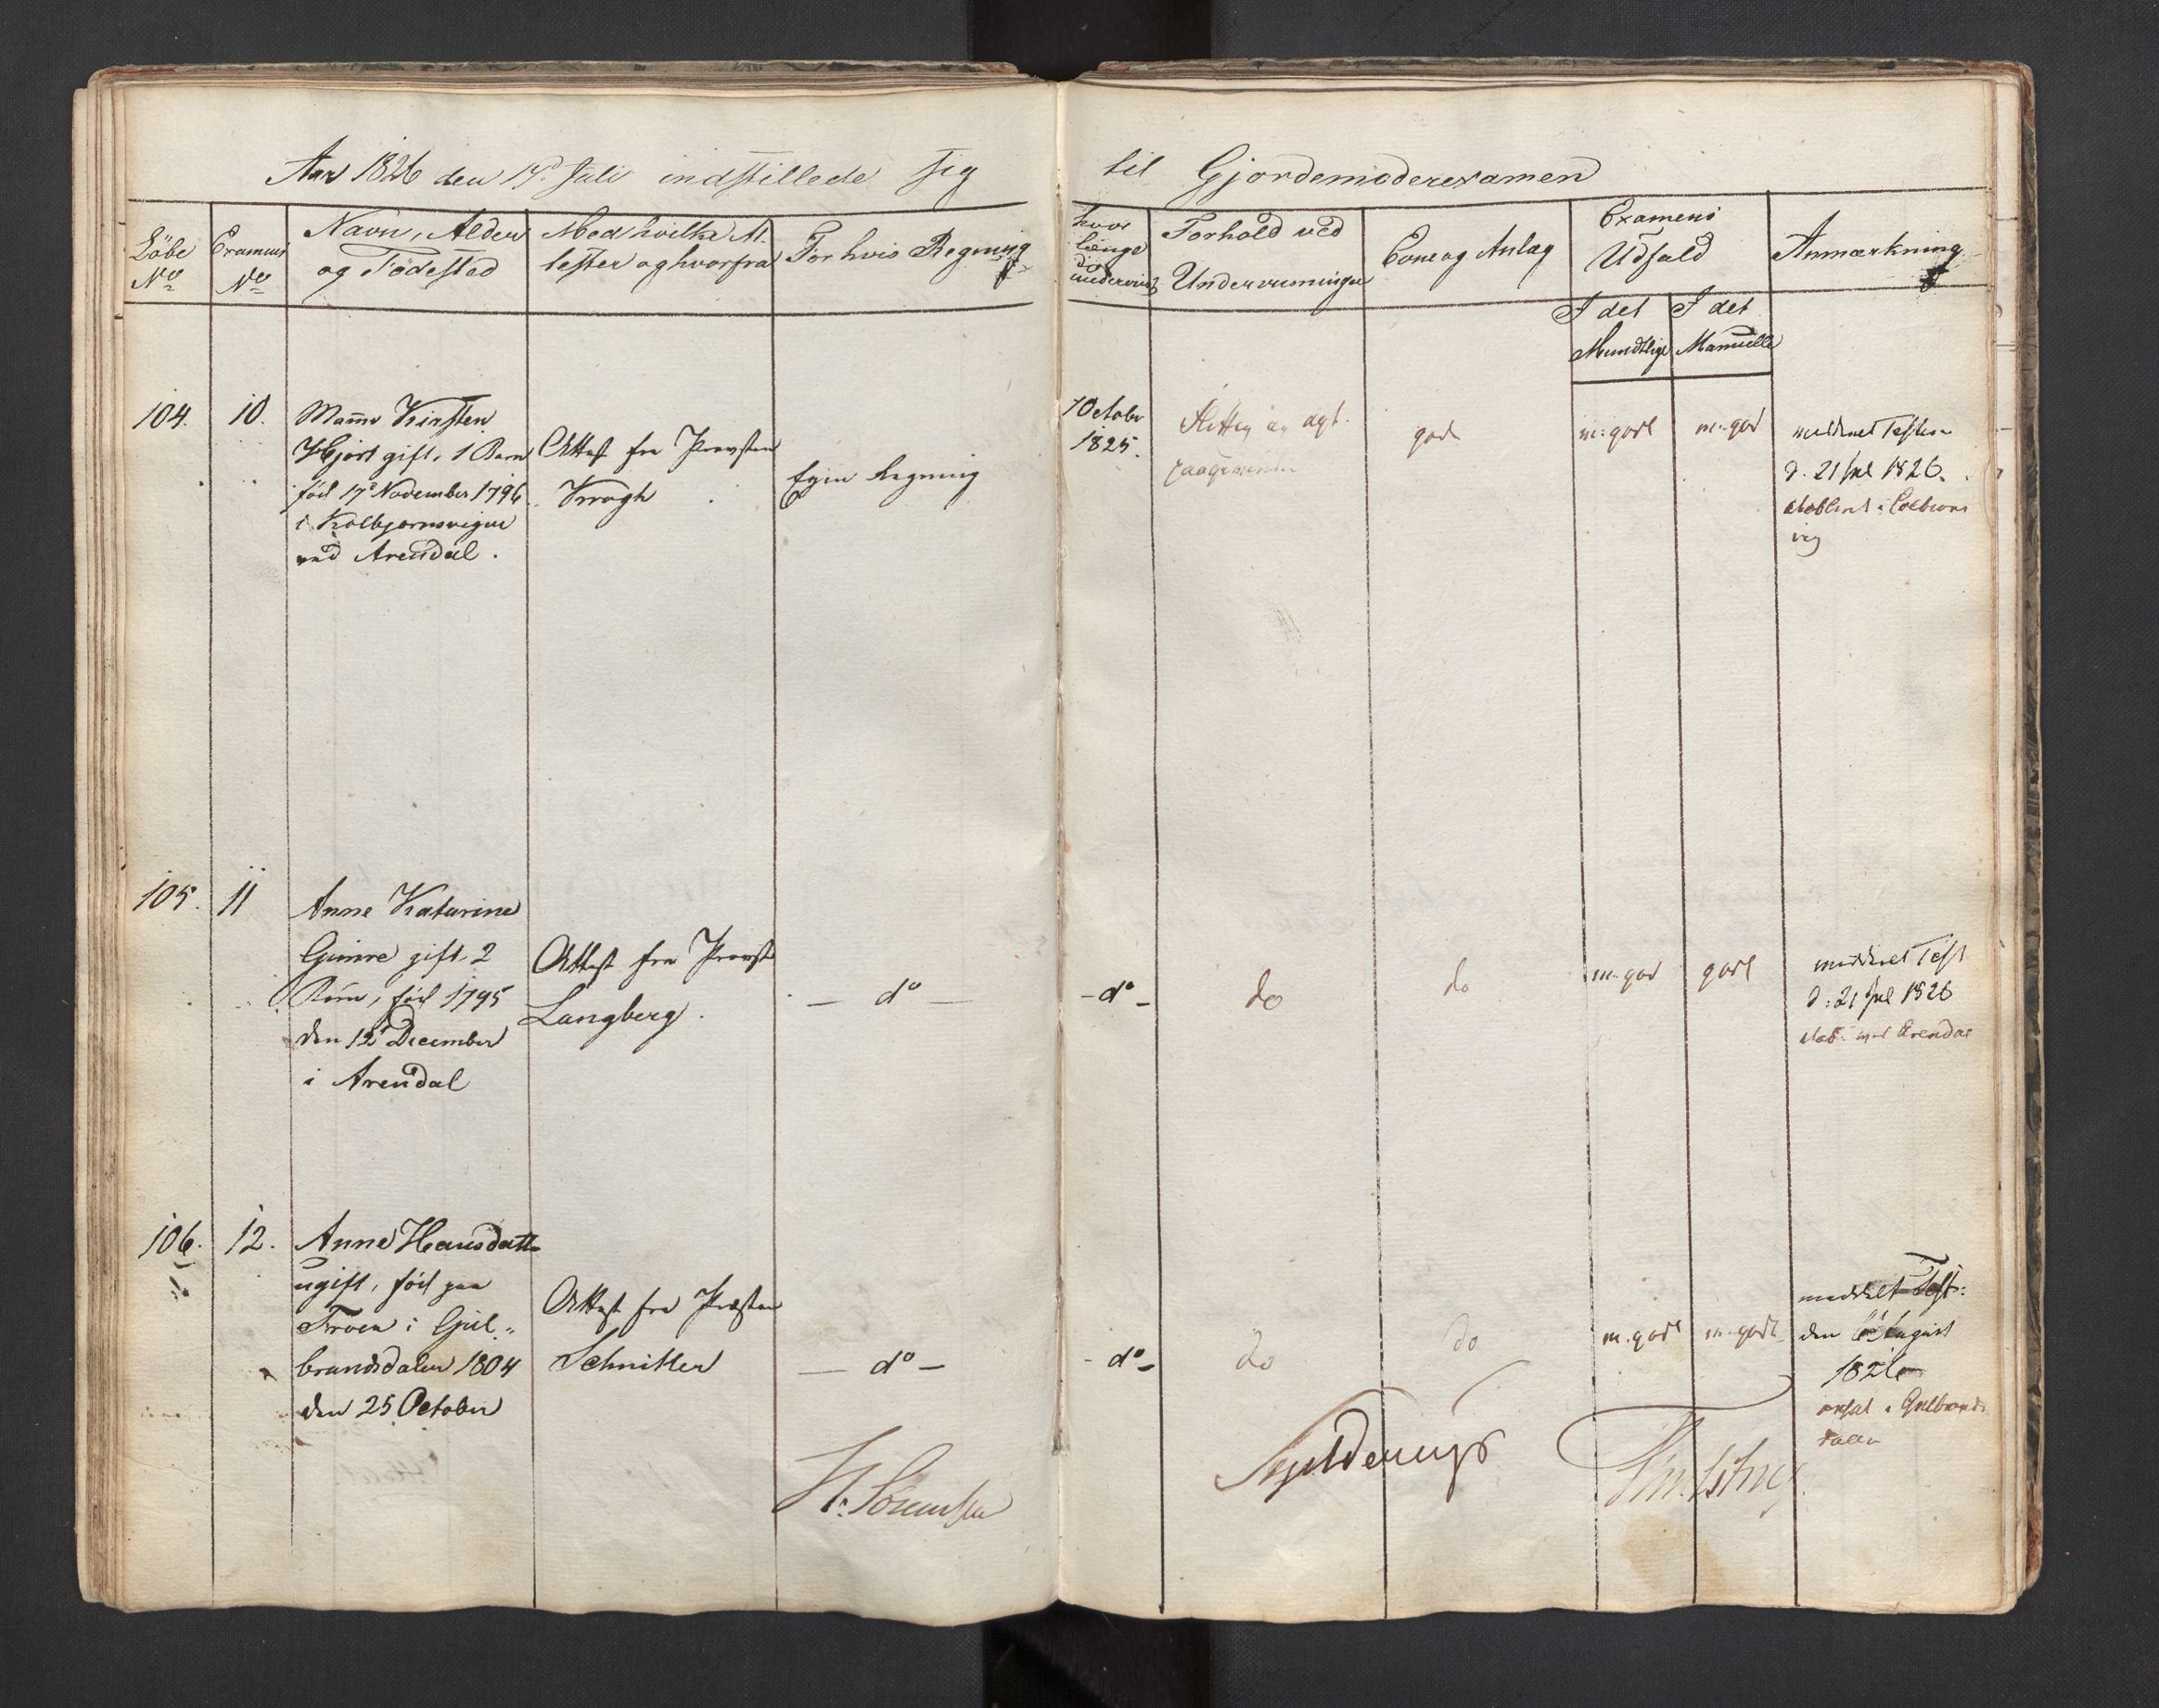 Aar 1826 den 17d Juli indstillede sig til Gjordemoderexamen
Löbe No
Examens No
Navn, Alder og Födested
Med hvilke Attester og hvorfra
For hvis Regning
hvor længe underviist
Forhold ved Underviisningen
Evne og Anlæg
Examens Udfald
I det Mundtlige
I det Manuelle
Anmærkning
104.
10.
Madme Kirsten
Hjort gift, 1 Barn
född 17d November 1796
i Kolbjornsvigen
ved Arendal.
Attest fra Provsten
Krogh
Egen Regning
1 October
1825.
agt
god
m: godt
m: god
meddeelt Testim
d. 21 Jul 1826.
etablert i Colbions
vig
105.
11
Anne Katarine
Gunne gift, 2
Börn, föd 1795
den 12d December
i Arendal
Attest fra Provst
Langberg.
— do —
- do -
do
do
m: god
godt
meddeelt Test
d: 21 Jul 1826
etab. ved Arendal
106.
12.
Anne Hansdatter
ugift, föd paa
Troen i Gul„
brandsdalen 1804
den 25 October
Attest fra Præsten
Schnitler
— do —
- do -
do
do
m. godt
m. godt
meddelt Test:
den August
1826
ansat i Gulbrands
dalen
H. Sörensen
Skjelderup